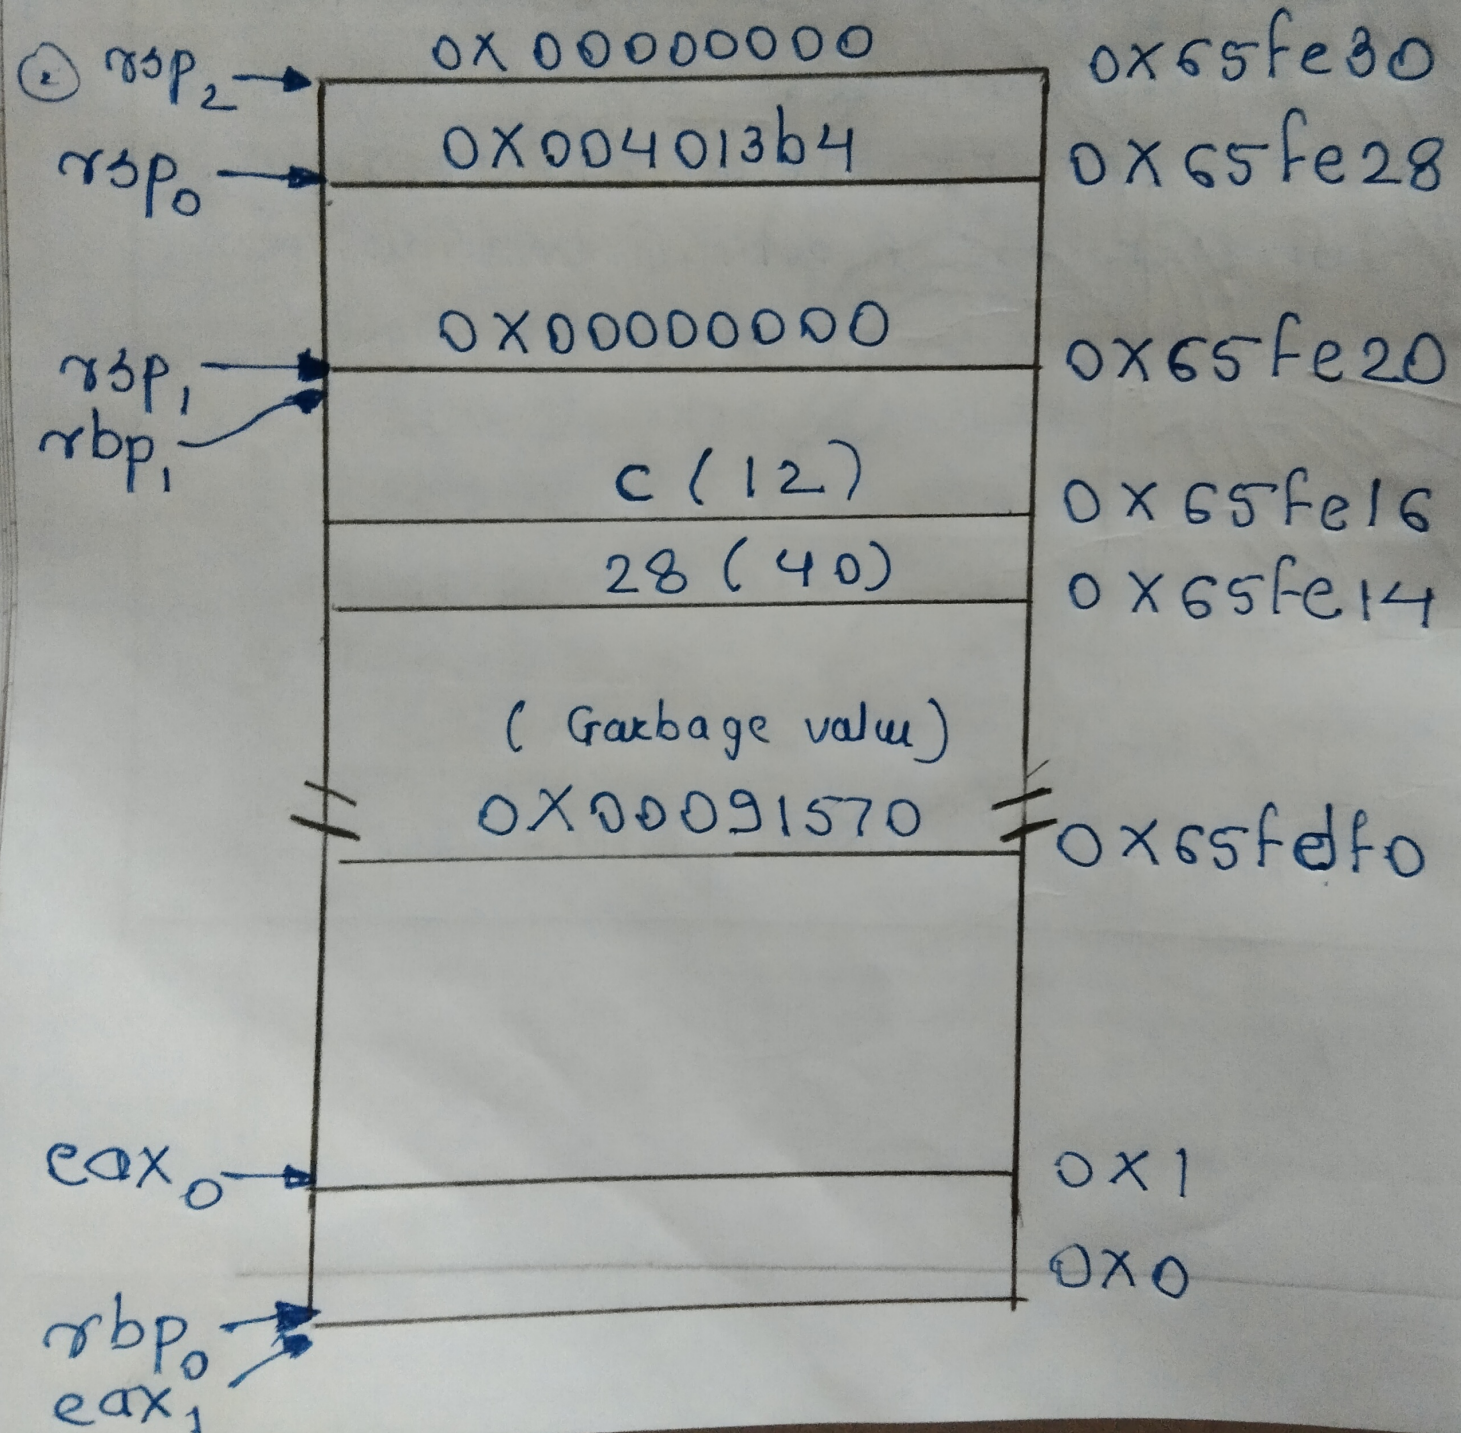 2 rsp2 0x00000000 0x65fe30
rsp0 0x004013b4 0x65fe28
rsp1 0x00000000 0x65fe20
rbp1
c (12) 0x65fe16
28 (40) 0x65fe14
(Garbage value)
0x00091570 0x65fdf0
eax0 0x1
0x0
rbp0
eax1